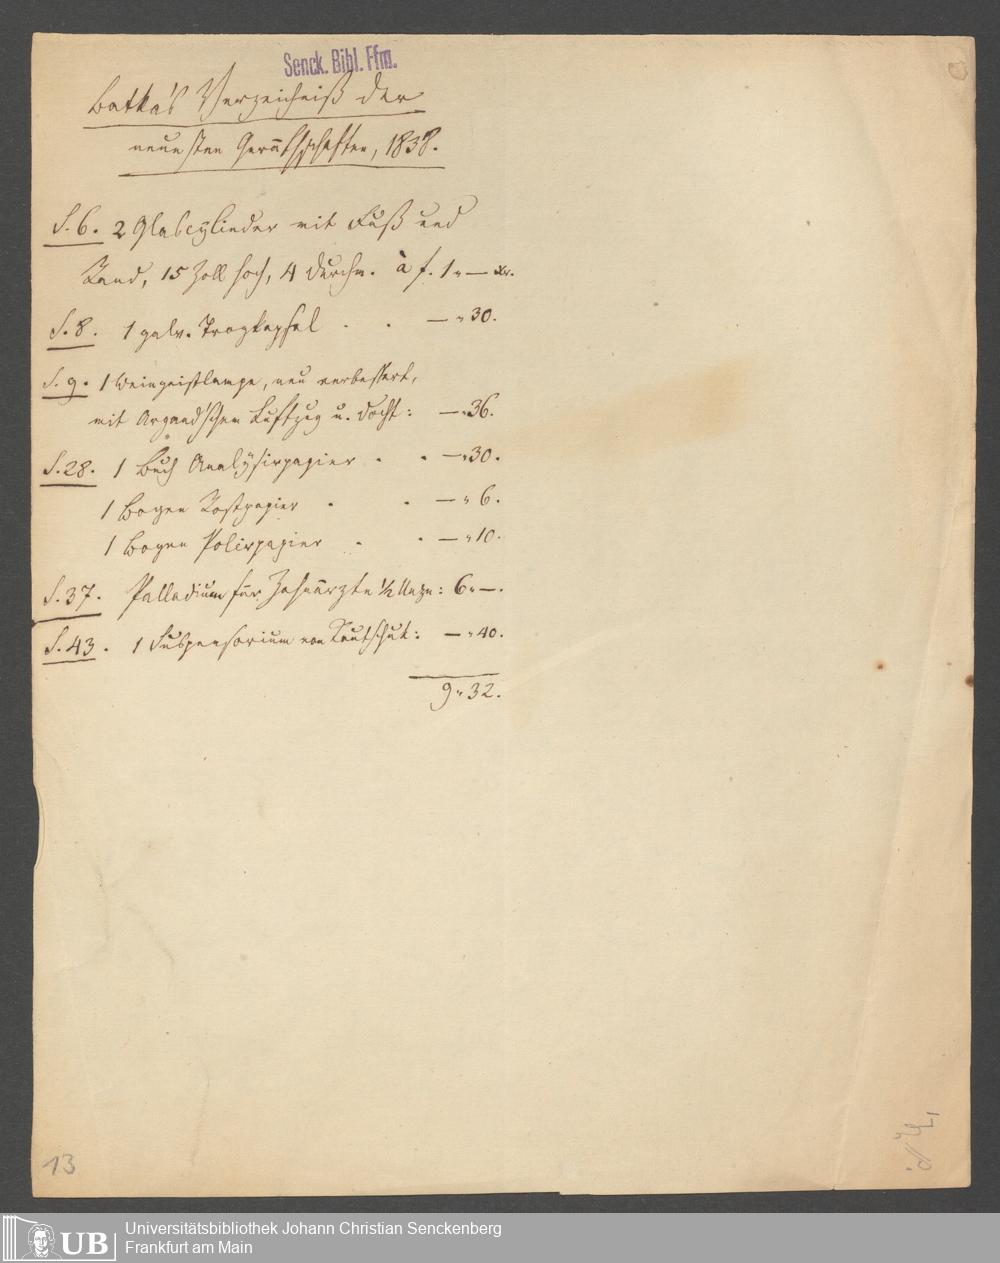 Senck. Bibl. Ffm.
Batka's Verzeichniß der
neuesten Geräthschaften, 1838.
S. 6. 2 Glascylinder mit Fuß und
Rand, 15 Zoll hoch, 4 Durchm. à f. 1 " — Xr.
S. 8. 1 galv. Trogkapsel . . — " 30.
S. 9. 1 Weingeistlampe, neu verbessert,
mit Argand'schem Luftzug u. Docht: — " 36.
S. 28. 1 Buch Analysirpapier . . — " 30.
1 Bogen Rostpapier . . — " 6.
1 Bogen Polirpapier . . — " 10.
S. 37. Palladium für Zahnärzte 1/2 Unze: 6 " —.
S. 43. 1 Suspensorium von Kautschuk: — " 40.
9 " 32.
13
UB
Universitätsbibliothek Johann Christian Senckenberg
Frankfurt am Main